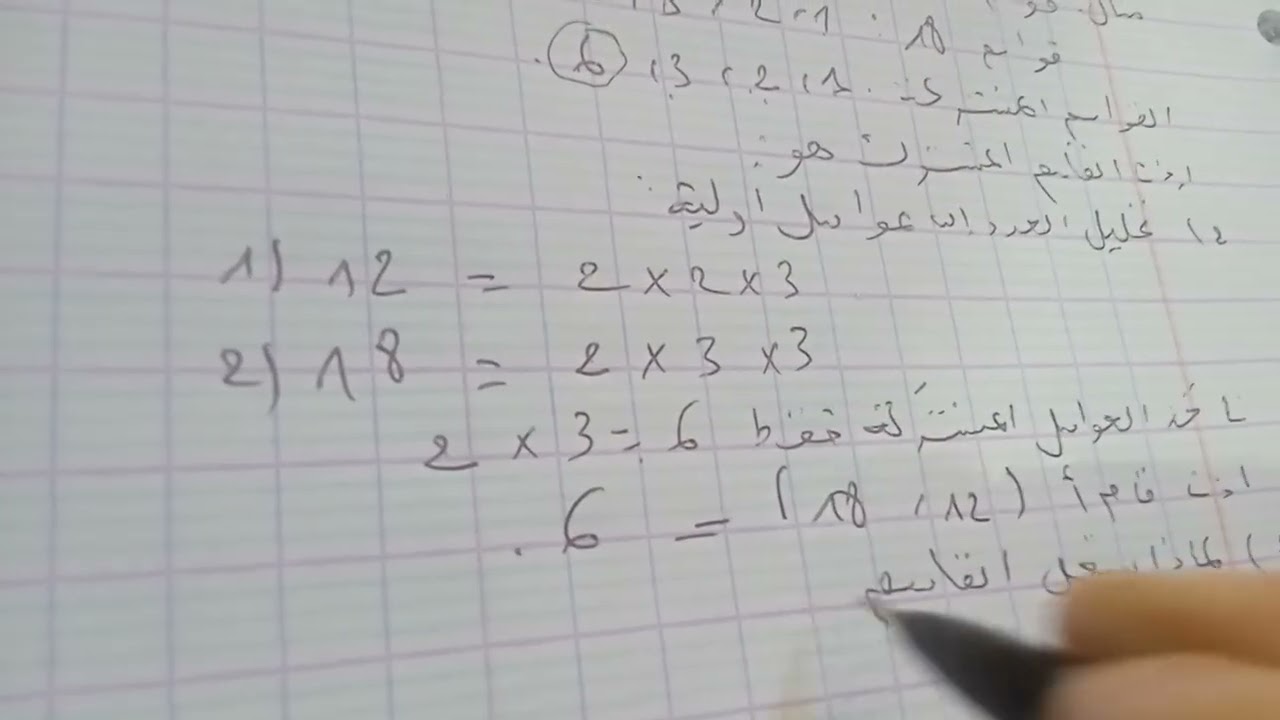 قواسم 18 :
القواسم المشتركة: 1، 2، 3، 6.
اذن القاسم المشترك هو:
2) تحليل العدد الى عوامل أولية:
1) 12 = 2 × 2 × 3
2) 18 = 2 × 3 × 3
ناخذ العوامل المشتركة فقط 6 = 3 × 2
اذن ق م أ (12، 18) = 6.
القاسم